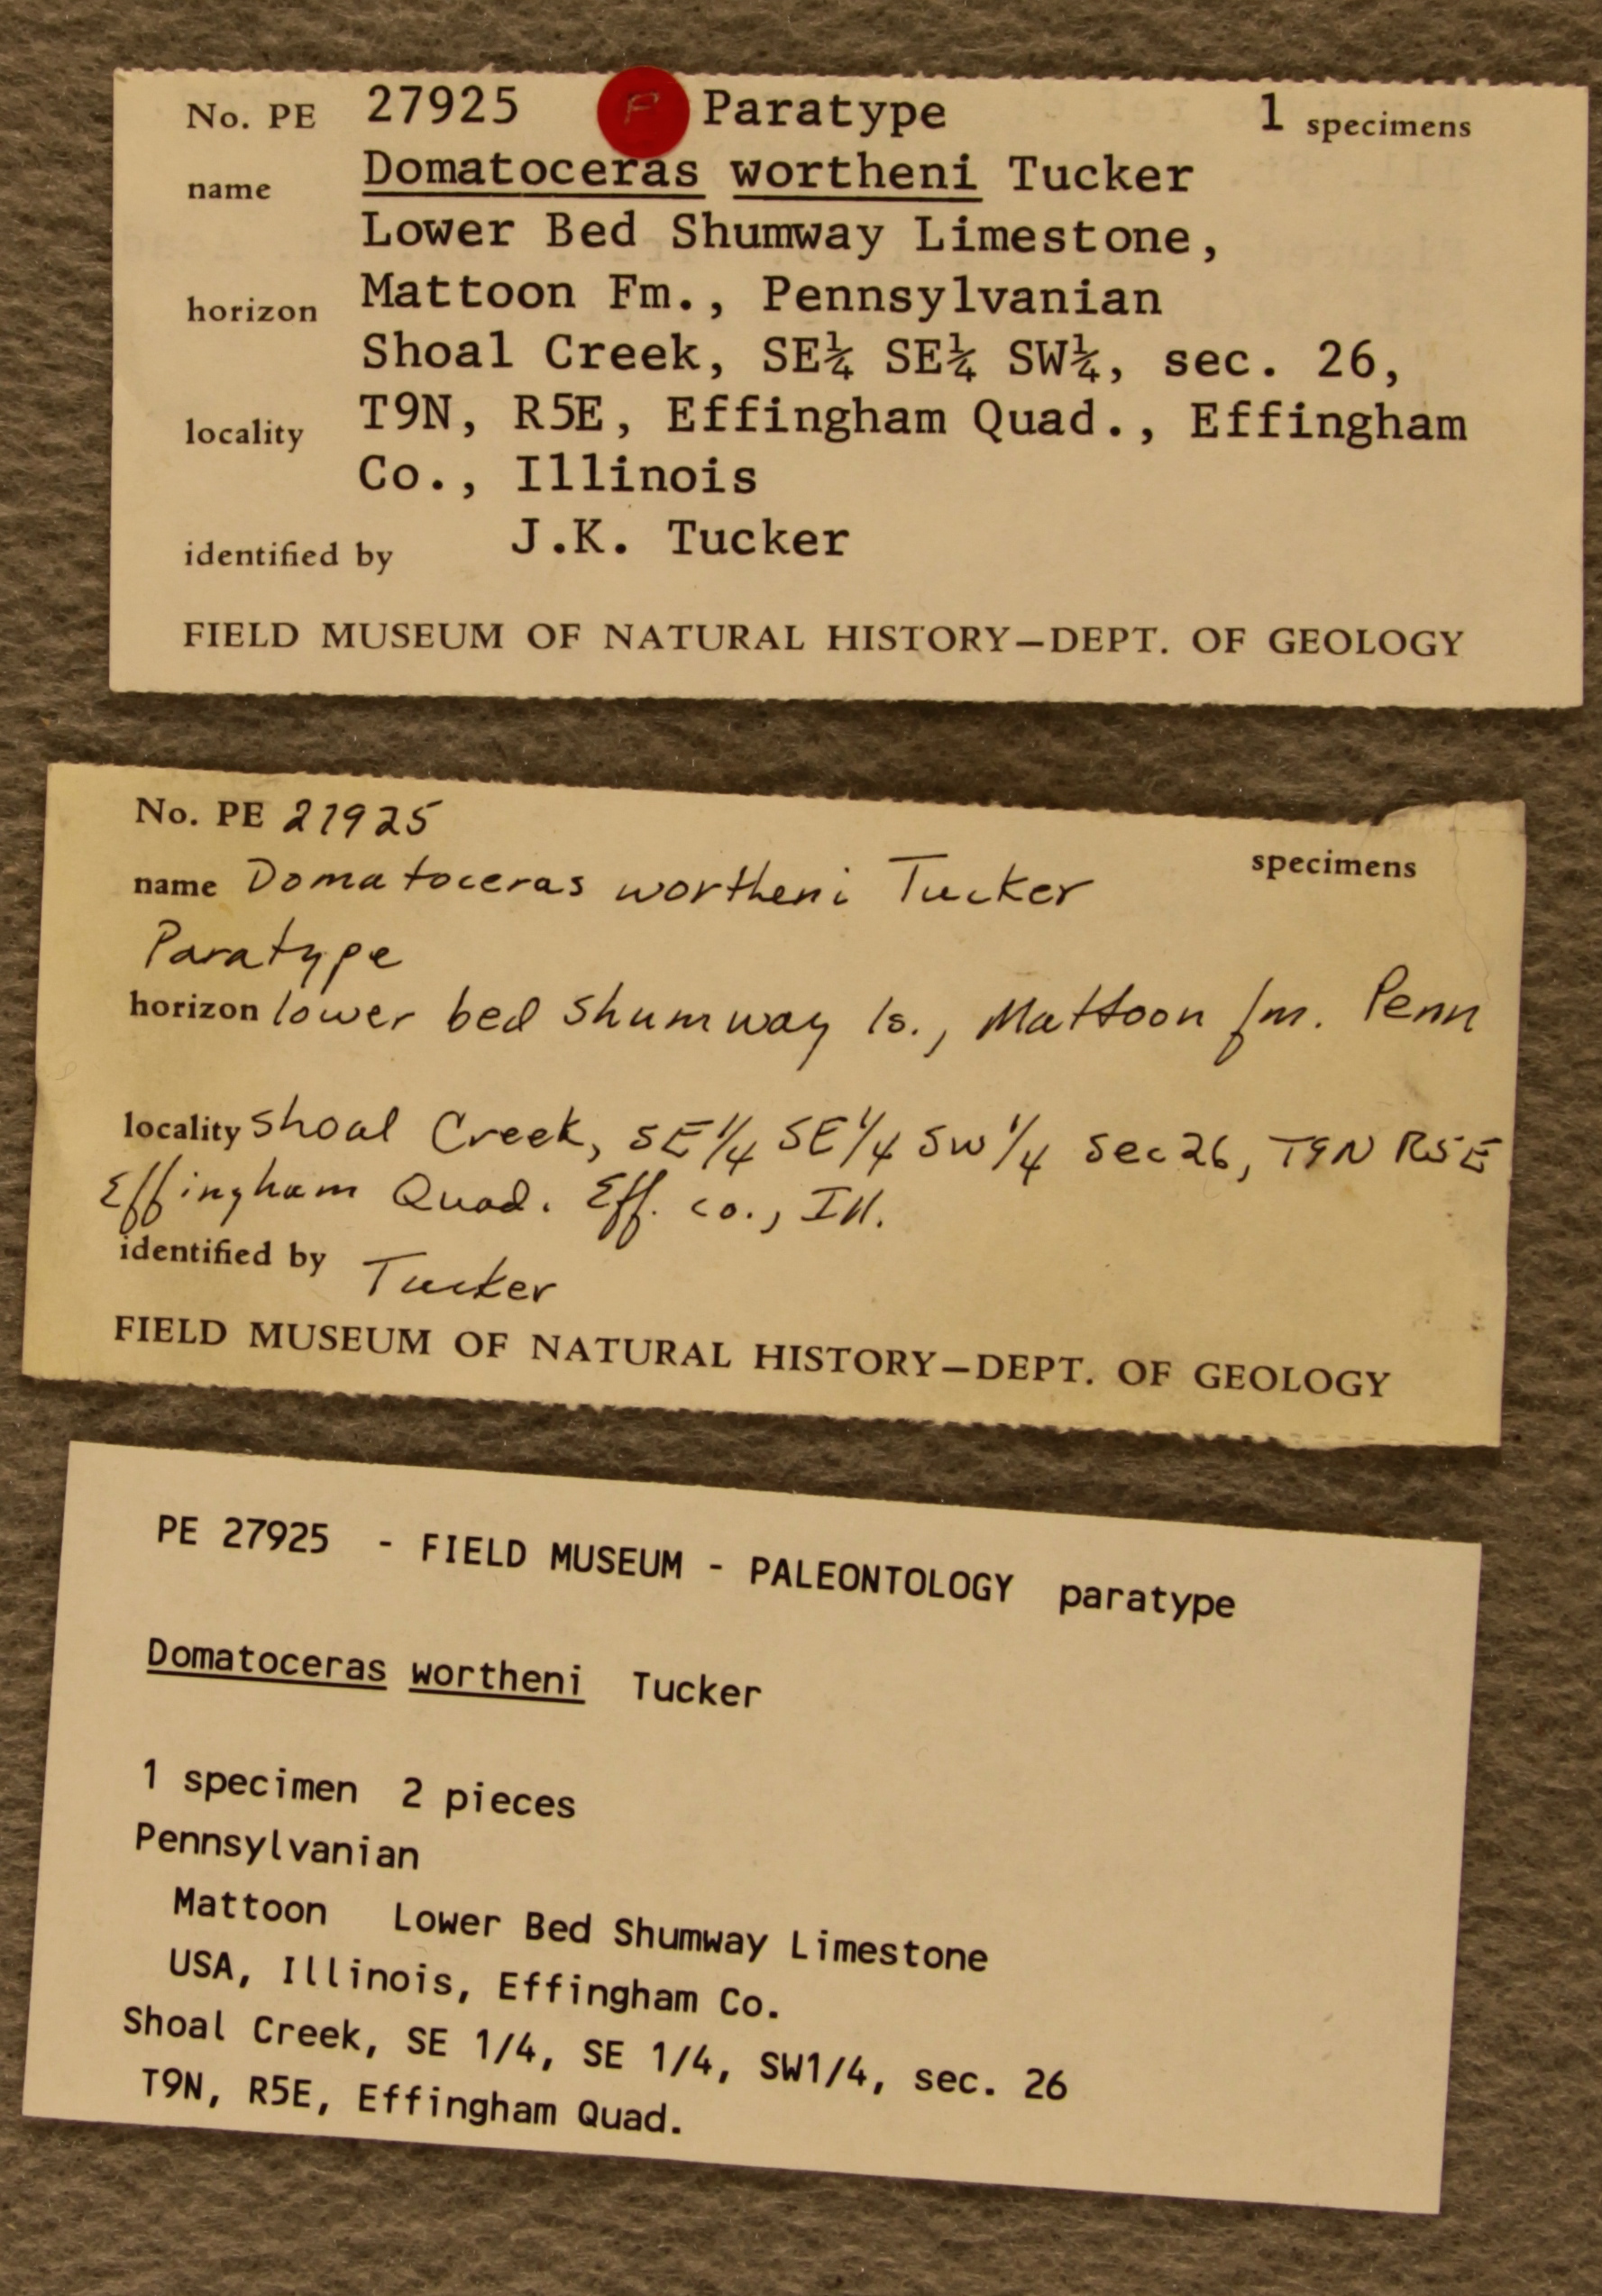 No. PE 27925 P Paratype 1 specimens
name Domatoceras wortheni Tucker
Lower Bed Shumway Limestone,
horizon Mattoon Fm., Pennsylvanian
Shoal Creek, SE¼ SE¼ SW¼, sec. 26,
locality T9N, R5E, Effingham Quad., Effingham
Co., Illinois
identified by J.K. Tucker
FIELD MUSEUM OF NATURAL HISTORY—DEPT. OF GEOLOGY
No. PE 27925
specimens
name Domatoceras wortheni Tucker
Paratype
horizon lower bed Shumway ls., Mattoon fm. Penn
locality Shoal Creek, SE 1/4 SE 1/4 SW 1/4 Sec 26, T9N R5E
Effingham Quad. Eff. co., Ill.
identified by Tucker
FIELD MUSEUM OF NATURAL HISTORY—DEPT. OF GEOLOGY
PE 27925 - FIELD MUSEUM - PALEONTOLOGY paratype
Domatoceras wortheni Tucker
1 specimen 2 pieces
Pennsylvanian
Mattoon Lower Bed Shumway Limestone
USA, Illinois, Effingham Co.
Shoal Creek, SE 1/4, SE 1/4, SW1/4, sec. 26
T9N, R5E, Effingham Quad.